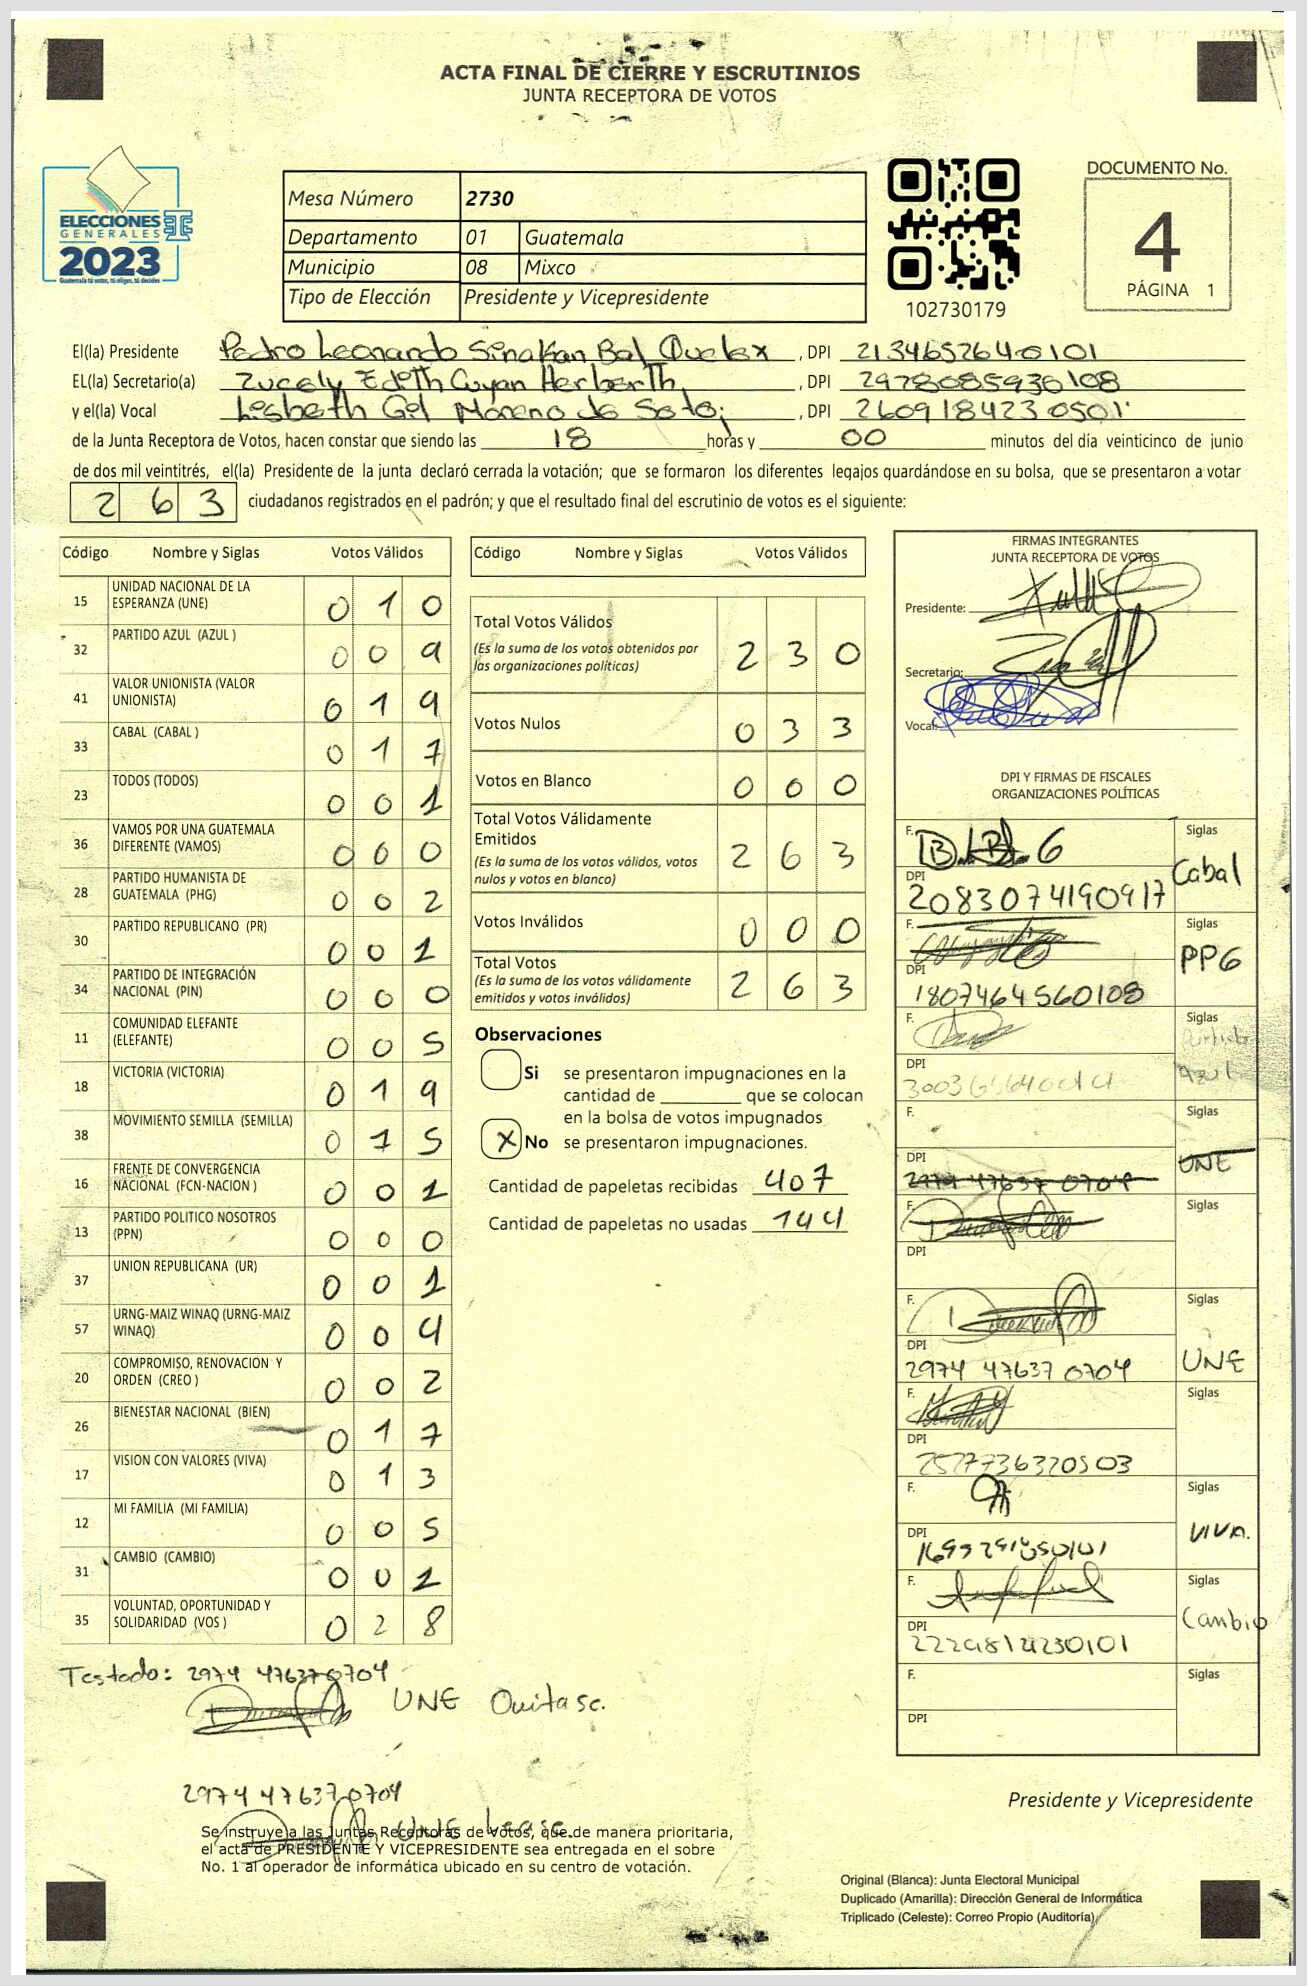 ACTA FINAL DE CIERRE Y ESCRUTINIOS
JUNTA RECEPTORA DE VOTOS
ELECCIONES
GENERALES
2023
Guatemala tú votas, tú eliges, tú decides
Mesa Número 2730
Departamento 01 Guatemala
Municipio 08 Mixco
Tipo de Elección Presidente y Vicepresidente
102730179
DOCUMENTO No.
4
PÁGINA 1
El(la) Presidente Pedro Leonardo Sinakan Bal Quelex , DPI 2134652640101
EL(la) Secretario(a) Zucely Edith Cuyan Herbarth , DPI 2978085930108
y el(la) Vocal Lisbeth Gil Moreno de Soto , DPI 2609184230501
de la Junta Receptora de Votos, hacen constar que siendo las 18 horas y 00 minutos del día veinticinco de junio
de dos mil veintitrés, el(la) Presidente de la junta declaró cerrada la votación; que se formaron los diferentes legajos guardándose en su bolsa, que se presentaron a votar
263 ciudadanos registrados en el padrón; y que el resultado final del escrutinio de votos es el siguiente:
Código Nombre y Siglas Votos Válidos
15 UNIDAD NACIONAL DE LA ESPERANZA (UNE) 0 1 0
32 PARTIDO AZUL (AZUL ) 0 0 9
41 VALOR UNIONISTA (VALOR UNIONISTA) 0 1 9
33 CABAL (CABAL ) 0 1 7
23 TODOS (TODOS) 0 0 1
36 VAMOS POR UNA GUATEMALA DIFERENTE (VAMOS) 0 0 0
28 PARTIDO HUMANISTA DE GUATEMALA (PHG) 0 0 2
30 PARTIDO REPUBLICANO (PR) 0 0 1
34 PARTIDO DE INTEGRACIÓN NACIONAL (PIN) 0 0 0
11 COMUNIDAD ELEFANTE (ELEFANTE) 0 0 5
18 VICTORIA (VICTORIA) 0 1 9
38 MOVIMIENTO SEMILLA (SEMILLA) 0 1 5
16 FRENTE DE CONVERGENCIA NACIONAL (FCN-NACION ) 0 0 1
13 PARTIDO POLITICO NOSOTROS (PPN) 0 0 0
37 UNION REPUBLICANA (UR) 0 0 1
57 URNG-MAIZ WINAQ (URNG-MAIZ WINAQ) 0 0 4
20 COMPROMISO, RENOVACION Y ORDEN (CREO ) 0 0 2
26 BIENESTAR NACIONAL (BIEN) 0 1 7
17 VISION CON VALORES (VIVA) 0 1 3
12 MI FAMILIA (MI FAMILIA) 0 0 5
31 CAMBIO (CAMBIO)
35 VOLUNTAD, OPORTUNIDAD Y SOLIDARIDAD (VOS ) 0 2 8
Testado: 2974 47637 0704
UNE Quitase.
2974 47637 0704
UNE Lease.
Se instruye a las Juntas Receptoras de Votos, que de manera prioritaria,
el acta de PRESIDENTE Y VICEPRESIDENTE sea entregada en el sobre
No. 1 al operador de informática ubicado en su centro de votación.
Código Nombre y Siglas Votos Válidos
Total Votos Válidos
(Es la suma de los votos obtenidos por las organizaciones políticas) 2 3 0
Votos Nulos 0 3 3
Votos en Blanco 0 0 0
Total Votos Válidamente Emitidos
(Es la suma de los votos válidos, votos nulos y votos en blanco) 2 6 3
Votos Inválidos 0 0 0
Total Votos
(Es la suma de los votos válidamente emitidos y votos inválidos) 2 6 3
Observaciones
Si se presentaron impugnaciones en la
cantidad de ________ que se colocan
en la bolsa de votos impugnados
X No se presentaron impugnaciones.
Cantidad de papeletas recibidas 407
Cantidad de papeletas no usadas 144
FIRMAS INTEGRANTES
JUNTA RECEPTORA DE VOTOS
Presidente:
Secretario:
Vocal:
DPI Y FIRMAS DE FISCALES
ORGANIZACIONES POLÍTICAS
F. Siglas
Cabal
DPI
2083074190917
F. Siglas
PPG
DPI
1807464560108
F. Siglas
Partido
Azul
DPI
F. Siglas
UNE
DPI
2974 47637 0704
F. Siglas
DPI
F. Siglas
UNE
DPI
2974 47637 0704
F. Siglas
DPI
2527736320503
F. Siglas
VIVA.
DPI
F. Siglas
Cambio
DPI
F. Siglas
DPI
Presidente y Vicepresidente
Original (Blanca): Junta Electoral Municipal
Duplicado (Amarilla): Dirección General de Informática
Triplicado (Celeste): Correo Propio (Auditoría)